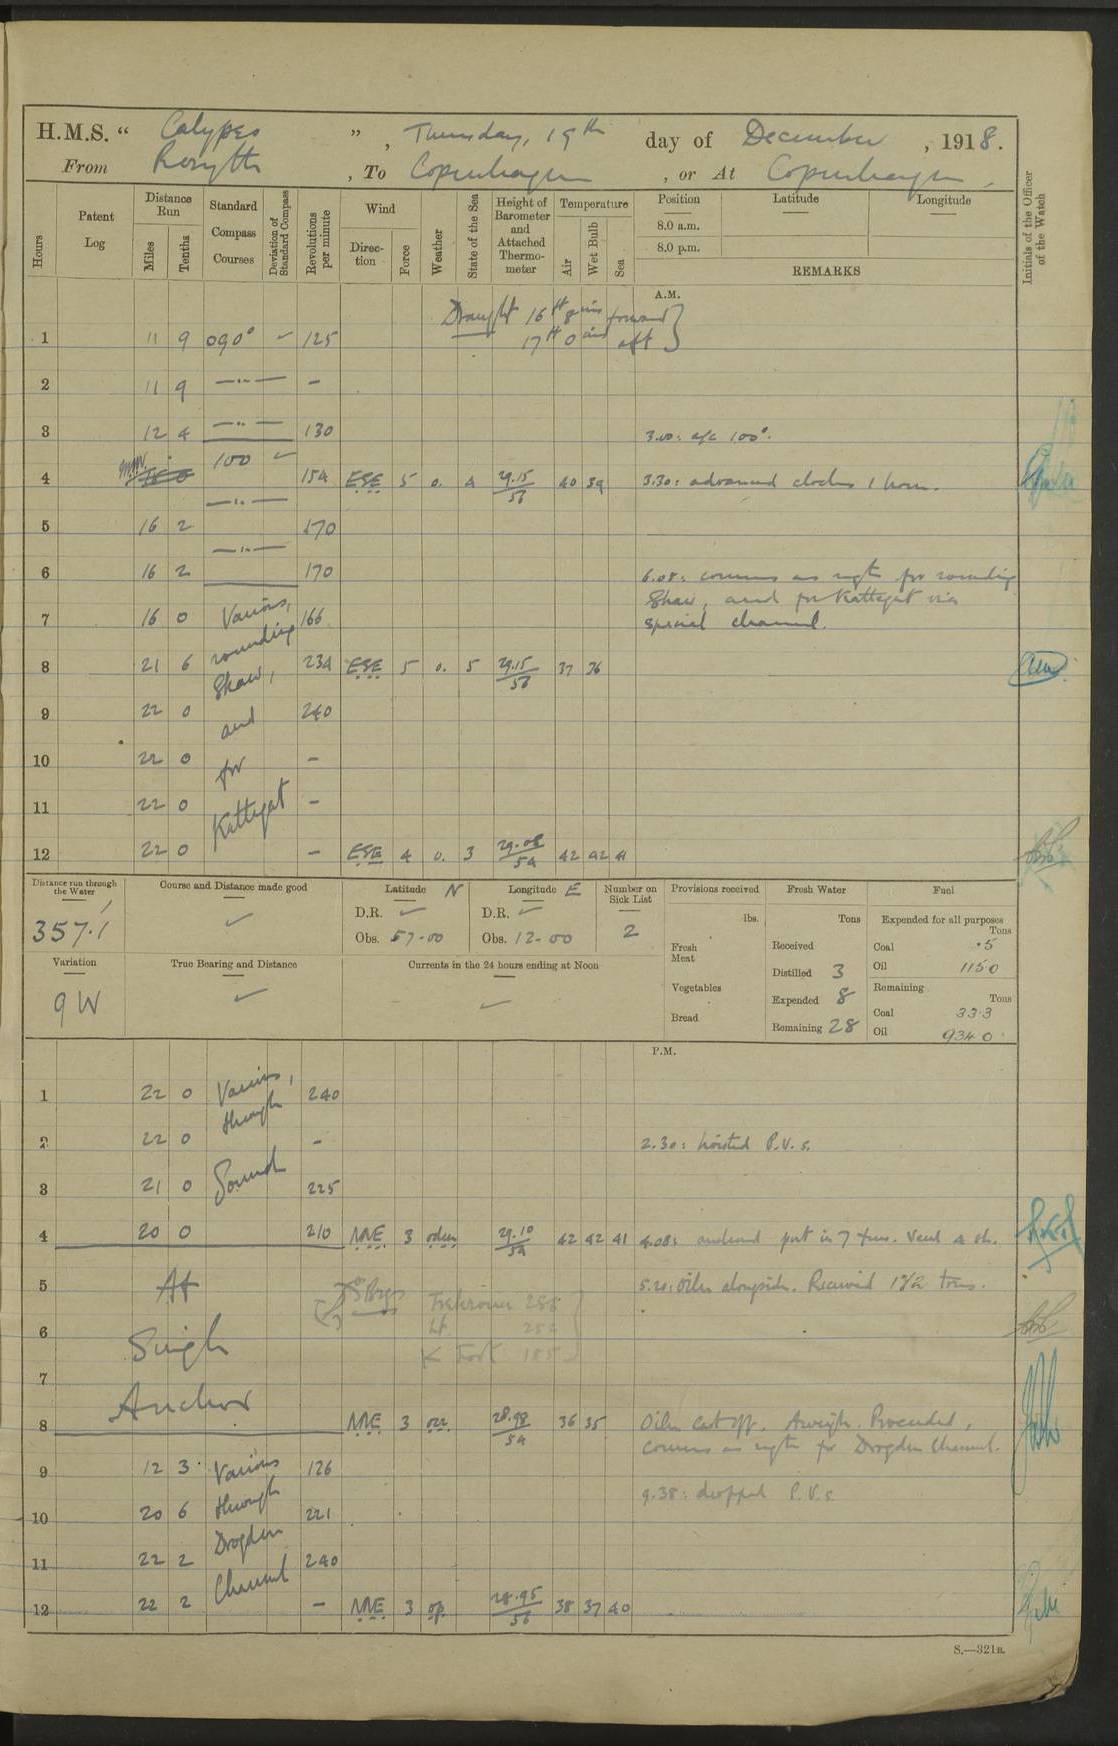 H.M.S. “ Calypso ”, Thursday, 19th day of December, 1918.
From Rosyth, To Copenhagen, or At Copenhagen,
Hours
Patent Log
Distance Run
Miles
Tenths
Standard Compass Courses
Deviation of Standard Compass
Revolutions per minute
Wind
Direction
Force
Weather
State of the Sea
Height of Barometer and Attached Thermometer
Temperature
Air
Wet Bulb
Sea
Position
Latitude
Longitude
8.0 a.m.
8.0 p.m.
REMARKS
Initials of the Officer of the Watch
A.M.
Draught 16 ft 8 ins forward
17 ft 0 ins aft
1 11 9 090° ✓ 125
2 11 9 —"— -
3 12 4 —"— 130 3.00: a/c 100°.
4 100 ✓ 154 ESE 5 o. 4 29.15 40 39 3.30: advanced clocks 1 hour.
—"—
5 16 2 170
—"—
6 16 2 170 6.08: courses as reqte for rounding
Skaw, and for Kattegat via
7 16 0 Various, 166 special channel.
8 21 6 rounding 234 ESE 5 o. 5 29.15 37 36
Skaw,
9 22 0 and 240
10 22 0 for -
11 22 0 Kattegat -
12 22 0 - ESE 4 o. 3 29.08 / 54 42 42 41
Distance run through the Water
357.1
Course and Distance made good
✓
Latitude N
D.R. ✓
Obs. 57-00
Longitude E
D.R. ✓
Obs. 12-00
Number on Sick List
2
Provisions received
lbs.
Fresh Meat
Vegetables
Bread
Fresh Water
Tons
Received
Distilled 3
Expended 8
Remaining 28
Fuel
Expended for all purposes
Tons
Coal .5
Oil 115.0
Remaining
Tons
Coal 33.3
Oil 934.0
Variation
9 W
True Bearing and Distance
✓
Currents in the 24 hours ending at Noon
✓
P.M.
1 22 0 Various, 240
through
2 22 0 - 2.30: hoisted P.V.s.
3 21 0 Sound 225
4 20 0 210 NNE 3 29.10 / 54 42 42 41 4.08: anchored port in 7 fms. Veed 4 sh.
5 At 5.20: Oiler alongside. Received tons.
Brgs Trekroner
6 Single Lt. 252
K Fort 185
7
Anchor
8 NNE 3 28.98 / 54 36 35 Oiler cast off. Aweigh. Proceeded,
courses as reqte for Drogden Channel.
9 12 3 Various 126
9.38: dropped P.V.s
10 20 6 through 221
Drogden
11 22 2 240
Channel
12 22 2 - NNE 3 op. 28.95 38 37 40
S.—321B.